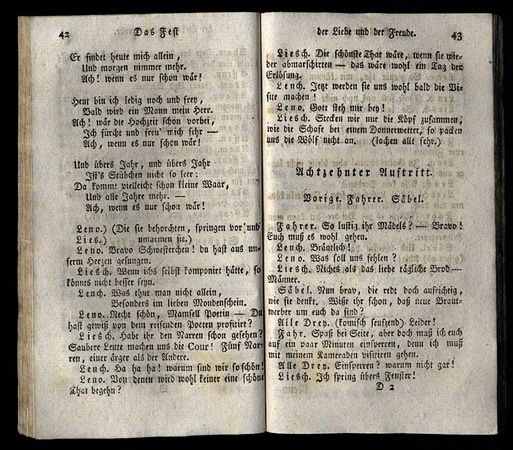 42 Das Fest
Er findet heute mich allein,
Und morgen nimmer mehr.
Ach! wenn es nur schon wär!
Heut bin ich ledig noch und frey,
Bald wird ein Mann mein Herr.
Ach! wär die Hochzeit schon vorbei,
Ich fürcht und freu' mich sehr —
Ach, wenn es nur schon wär!
Und übers Jahr, und übers Jahr
Ist's Stübchen nicht so leer:
Da kommt vielleicht schon kleine Waar,
Und alle Jahre mehr. —
Ach, wenn es nur schon wär!
Leno.) (Die sie behorchten, springen vor und
Lies.) umarmen sie.)
Leno. Bravo Schwesterchen! du hast aus un-
serm Herzen gesungen.
Liesch. Wenn ichs selbst komponirt hätte, so
könnts nicht besser seyn.
Lench. Was thut man nicht allein,
Besonders im lieben Mondenschein.
Leno. Recht schön, Mamsell Poetin — Du
hast gewiß von dem reisenden Poeten profitirt?
Liesch. Habt ihr den Narren schon gesehen?
Saubere Leute machen uns die Cour! Fünf Nar-
ren, einer ärger als der Andere.
Lench. Ha ha ha! warum sind wir so schön!
Leno. Von denen wird wohl keiner eine schöne
That begehn?
der Liebe und der Freude. 43
Liesch. Die schönste That wäre, wenn sie wie-
der abmarschirten — das wäre wohl ein Tag der
Erlösung.
Lench. Jetzt werden sie uns wohl bald die Vi-
site machen!
Leno. Gott steh uns bey!
Liesch. Stecken wir nur die Köpf zusammen,
wie die Schafe bei einem Donnerwetter, so packen
uns die Wölf nicht an. (lachen alle sehr.)
Achtzehnter Auftritt.
Vorige. Fahrer. Säbel.
Fahrer. So lustig ihr Mädels? — Bravo!
Euch muß es wohl gehen.
Lench. Bräutlich!
Leno. Was soll uns fehlen?
Liesch. Nichts als das liebe tägliche Brod—
Männer.
Säbel. Nun brav, die redt doch aufrichtig,
wie sie denkt. Wißt ihr schon, daß neue Braut-
werber um euch da sind?
Alle Drey. (komisch seufzend) Leider!
Fahr. Spaß bei Seite, aber doch muß ich euch
auf ein paar Minuten einsperren, denn ich muß
mit meinem Kameraden visitiren gehen.
Alle Drey. Einsperren? warum nicht gar!
Liesch. Ich spring übers Fenster!
D 2